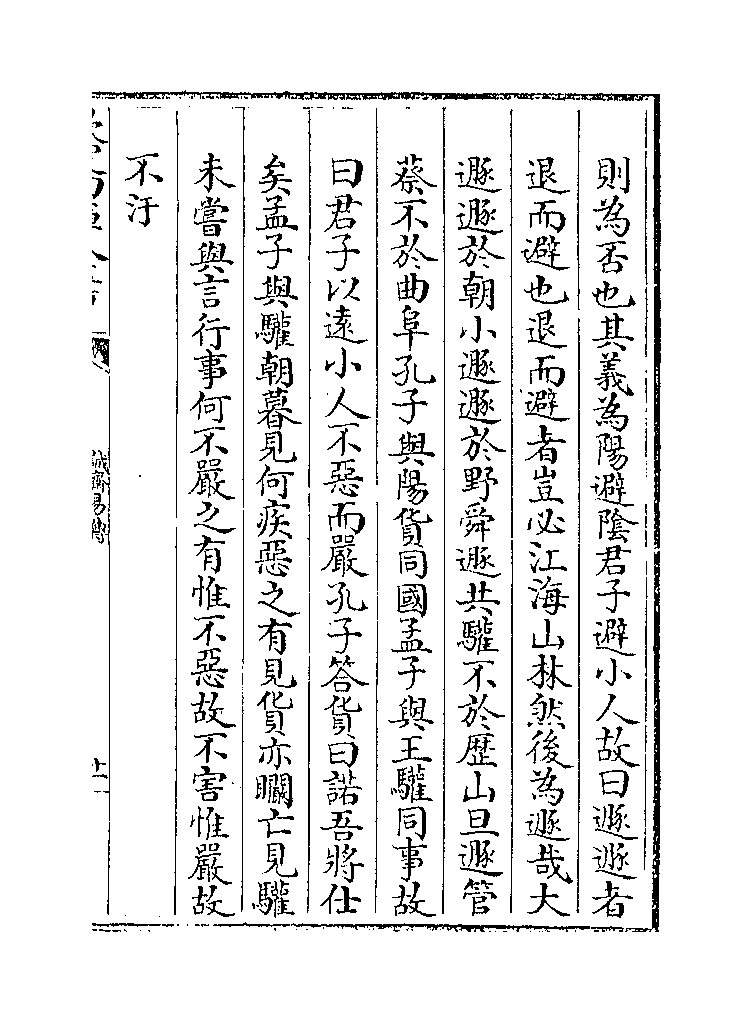 則為否也其義為陽避隂君子避小人故曰遯遯者
退而避也退而避者豈必江海山林然後為遯哉大
遯遯於朝小遯遯於野舜遯共驩不於歴山旦遯管
蔡不於曲阜孔子與陽貨同國孟子與王驩同事故
曰君子以逺小人不惡而嚴孔子答貨曰諾吾將仕
矣孟子與驩朝暮見何疾惡之有見貨亦矙亡見驩
未嘗與言行事何不嚴之有惟不惡故不害惟嚴故
不汙
誠齋易傳
十一